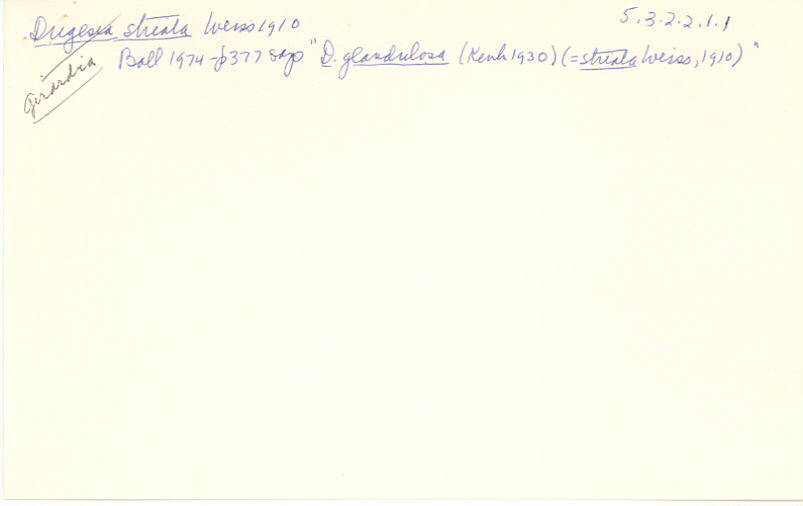 Dugesia striata Weiss 1910
5.3.2.2.1.1
Ball 1974 - p377 says "D. glandulosa (Kenk 1930) (= striata Weiss, 1910)"
Girardia